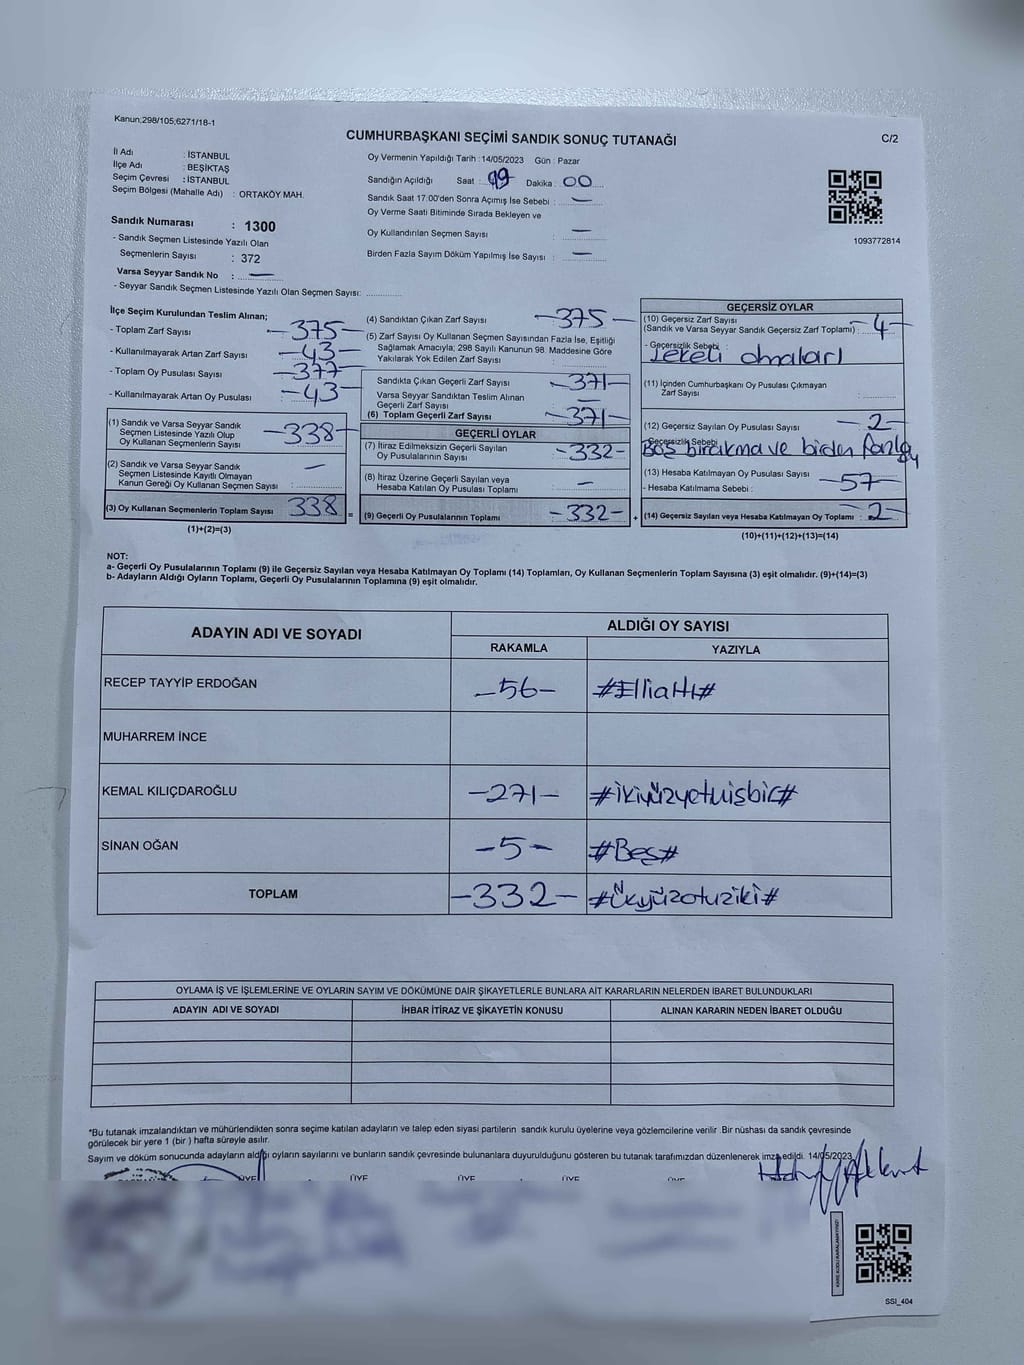 Kanun;298/105;6271/18-1
CUMHURBAŞKANI SEÇİMİ SANDIK SONUÇ TUTANAĞI
C/2
İl Adı : İSTANBUL
İlçe Adı : BEŞİKTAŞ
Seçim Çevresi : İSTANBUL
Seçim Bölgesi (Mahalle Adı) : ORTAKÖY MAH.
Sandık Numarası : 1300
- Sandık Seçmen Listesinde Yazılı Olan
Seçmenlerin Sayısı : 372
Varsa Seyyar Sandık No : —
- Seyyar Sandık Seçmen Listesinde Yazılı Olan Seçmen Sayısı:
Oy Vermenin Yapıldığı Tarih : 14/05/2023 Gün : Pazar
Sandığın Açıldığı Saat : 19 Dakika : 00
Sandık Saat 17:00'den Sonra Açımış İse Sebebi : —
Oy Verme Saati Bitiminde Sırada Bekleyen ve
Oy Kullandırılan Seçmen Sayısı : —
Birden Fazla Sayım Döküm Yapılmış İse Sayısı : —
1093772814
İlçe Seçim Kurulundan Teslim Alınan;
- Toplam Zarf Sayısı —375—
- Kullanılmayarak Artan Zarf Sayısı —43—
- Toplam Oy Pusulası Sayısı —377—
- Kullanılmayarak Artan Oy Pusulası —43—
(1) Sandık ve Varsa Seyyar Sandık
Seçmen Listesinde Yazılı Olup
Oy Kullanan Seçmenlerin Sayısı —338—
(2) Sandık ve Varsa Seyyar Sandık
Seçmen Listesinde Kayıtlı Olmayan
Kanun Gereği Oy Kullanan Seçmen Sayısı : —
(3) Oy Kullanan Seçmenlerin Toplam Sayısı 338
(1)+(2)=(3)
=
(4) Sandıktan Çıkan Zarf Sayısı —375—
(5) Zarf Sayısı Oy Kullanan Seçmen Sayısından Fazla İse, Eşitliği
Sağlamak Amacıyla; 298 Sayılı Kanunun 98. Maddesine Göre
Yakılarak Yok Edilen Zarf Sayısı :
Sandıkta Çıkan Geçerli Zarf Sayısı —371—
Varsa Seyyar Sandıktan Teslim Alınan
Geçerli Zarf Sayısı —
(6) Toplam Geçerli Zarf Sayısı —371—
GEÇERLİ OYLAR
(7) İtiraz Edilmeksizin Geçerli Sayılan
Oy Pusulalarının Sayısı —332—
(8) İtiraz Üzerine Geçerli Sayılan veya
Hesaba Katılan Oy Pusulası Toplamı : —
(9) Geçerli Oy Pusulalarının Toplamı —332—
+
GEÇERSİZ OYLAR
(10) Geçersiz Zarf Sayısı
(Sandık ve Varsa Seyyar Sandık Geçersiz Zarf Toplamı) : —4—
- Geçersizlik Sebebi :
lekeli olmaları
(11) İçinden Cumhurbaşkanı Oy Pusulası Çıkmayan
Zarf Sayısı :
(12) Geçersiz Sayılan Oy Pusulası Sayısı : —2—
- Geçersizlik Sebebi
Boş bırakma ve birden fazla oy
(13) Hesaba Katılmayan Oy Pusulası Sayısı —57—
- Hesaba Katılmama Sebebi :
(14) Geçersiz Sayılan veya Hesaba Katılmayan Oy Toplamı : —2—
(10)+(11)+(12)+(13)=(14)
NOT:
a- Geçerli Oy Pusulalarının Toplamı (9) ile Geçersiz Sayılan veya Hesaba Katılmayan Oy Toplamı (14) Toplamları, Oy Kullanan Seçmenlerin Toplam Sayısına (3) eşit olmalıdır. (9)+(14)=(3)
b- Adayların Aldığı Oyların Toplamı, Geçerli Oy Pusulalarının Toplamına (9) eşit olmalıdır.
ADAYIN ADI VE SOYADI
ALDIĞI OY SAYISI
RAKAMLA YAZIYLA
RECEP TAYYİP ERDOĞAN —56— #Elliatı#
MUHARREM İNCE
KEMAL KILIÇDAROĞLU —271— #ikiyüzyetmişbir#
SİNAN OĞAN —5— #Beş#
TOPLAM —332— #Üçyüzotuziki#
OYLAMA İŞ VE İŞLEMLERİNE VE OYLARIN SAYIM VE DÖKÜMÜNE DAİR ŞİKAYETLERLE BUNLARA AİT KARARLARIN NELERDEN İBARET BULUNDUKLARI
ADAYIN ADI VE SOYADI İHBAR İTİRAZ VE ŞİKAYETİN KONUSU ALINAN KARARIN NEDEN İBARET OLDUĞU
*Bu tutanak imzalandıktan ve mühürlendikten sonra seçime katılan adayların ve talep eden siyasi partilerin sandık kurulu üyelerine veya gözlemcilerine verilir .Bir nüshası da sandık çevresinde
görülecek bir yere 1 (bir ) hafta süreyle asılır.
Sayım ve döküm sonucunda adayların aldığı oyların sayılarını ve bunların sandık çevresinde bulunanlara duyurulduğunu gösteren bu tutanak tarafımızdan düzenlenerek imza edildi. 14/05/2023
ÜYE ÜYE ÜYE ÜYE ÜYE
SSI_404